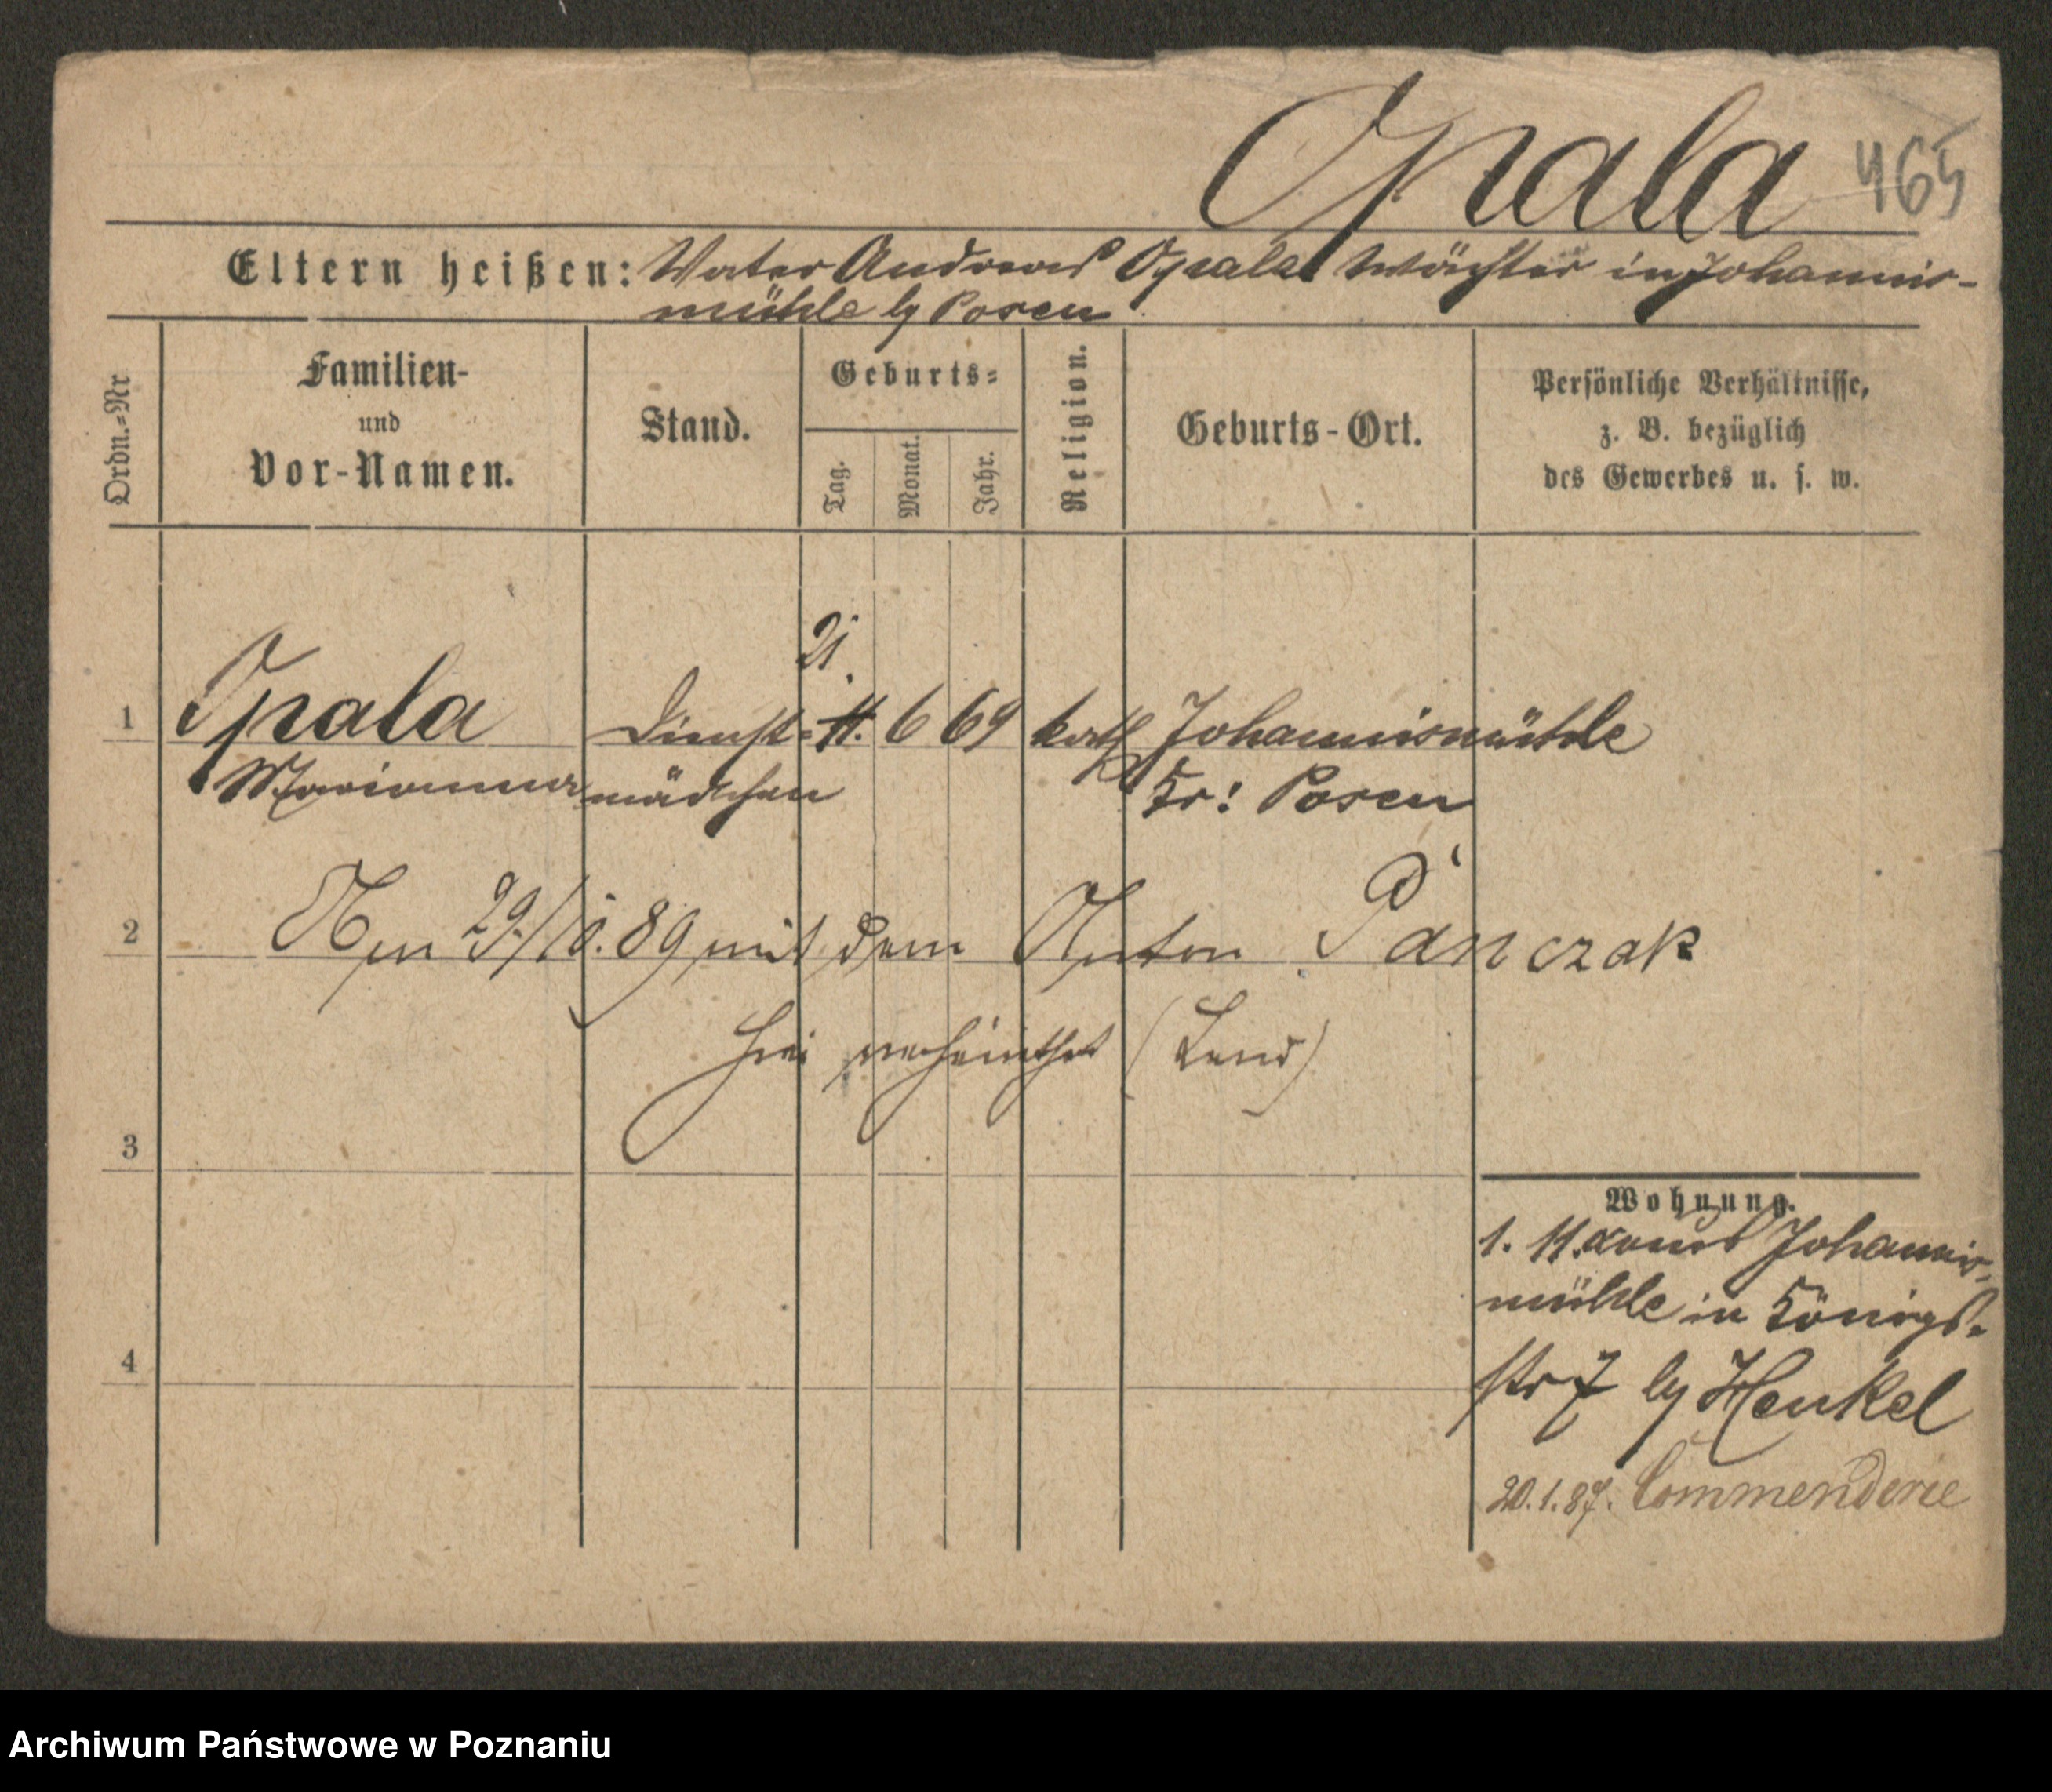 Opala 465
Eltern heißen: Vater Andreas Opala Wächter in Johannis-
mühle by Posen
Ordn.=Nr
Familien-
und
Vor-Namen.
Stand.
Geburts=
Tag.
Monat.
Jahr.
Religion.
Geburts-Ort.
Persönliche Verhältnisse,
z. B. bezüglich
des Gewerbes u. s. w.
21.
1 Opala Dienst= 11. 6 69 kath Johannismühle
Marianna mädchen Kr: Posen
2 Am 29./10. 89 mit dem Anton Panczak
hier verheirathet
3
Wohnung.
1. 11. Johannis-
mühle in Königs-
str 7 by Henkel
4
20.1.87. Commenderie
Archiwum Państwowe w Poznaniu